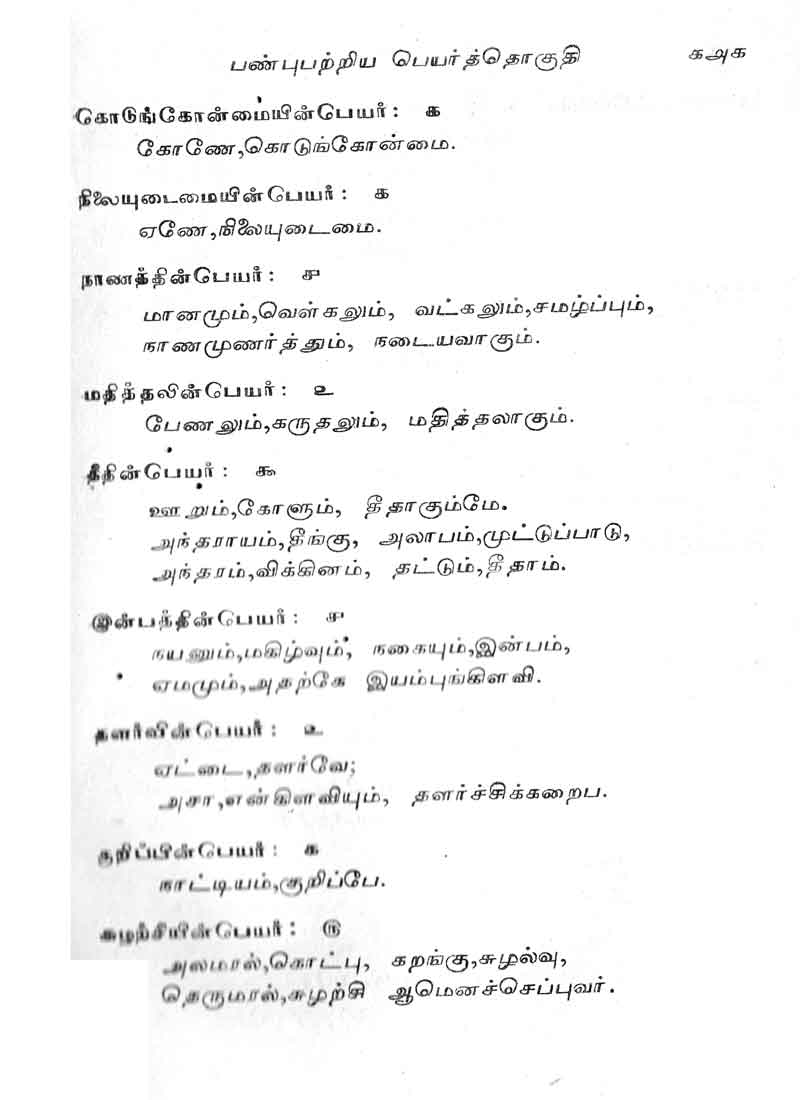 பண்புபற்றிய பெயர்த்தொகுதி ௧அ௧
கொடுங்கோன்மையின்பெயர்: ௧
கோணே,கொடுங்கோன்மை.
நிலையுடைமையின்பெயர்: ௧
ஏணே,நிலையுடைமை.
நாணத்தின்பெயர்: ௪
மானமும்,வெள்கலும், வட்கலும்,சமழ்ப்பும்,
நாணமுணர்த்தும், நடையவாகும்.
மதித்தலின்பெயர்: ௨
பேணலும்,கருதலும், மதித்தலாகும்.
தீதின்பெயர்: ௯
ஊறும்,கோளும், தீதாகும்மே.
அந்தராயம்,தீங்கு, அலாபம்,முட்டுப்பாடு,
அந்தரம்,விக்கினம், தட்டும்,தீதாம்.
இன்பத்தின்பெயர்: ௪
நயனும்,மகிழ்வும், நகையும்,இன்பம்,
ஏமமும்,அதற்கே இயம்புங்கிளவி.
தளர்வின்பெயர்: ௨
ஏட்டை,தளர்வே;
அசா,என்கிளவியும், தளர்ச்சிக்கறைப.
குறிப்பின்பெயர்: ௧
நாட்டியம்,குறிப்பே.
சுழற்சியின்பெயர்: ௫
அலமரல்,கொட்பு, கறங்கு,சுழல்வு,
தெருமரல்,சுழற்சி ஆமெனச்செப்புவர்.